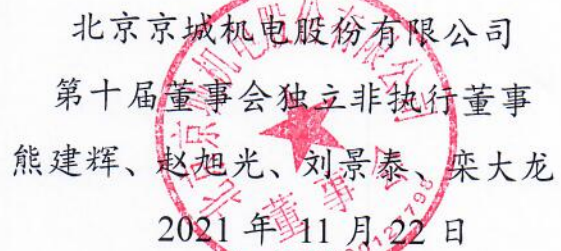 北京京城机电股份有限公司
第十届董事会独立非执行董事
熊建辉、赵旭光、刘景泰、栾大龙
2021 年 11 月 22 日
董事会